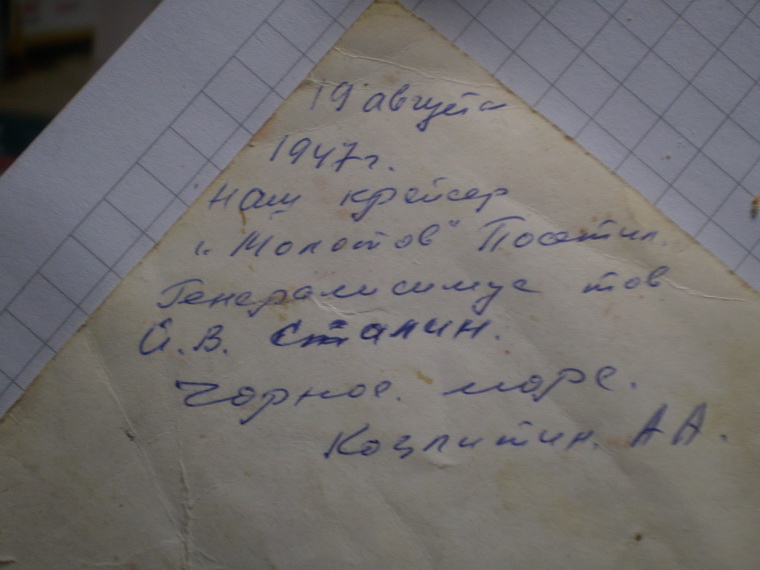 19 августа
1947 г.
наш крейсер
"Молотов" Посетил.
Генералисимус тов
И.В. Сталин.
Чорное. море.
Коцлитин. А А.